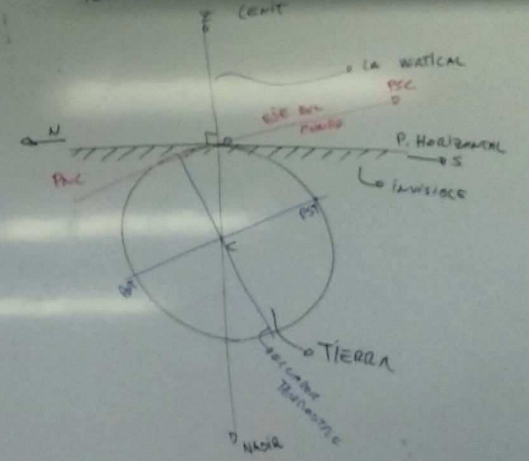 Z CENIT
LA VERTICAL
PSC
EJE DEL
MUNDO
N
P. HORIZONTAL
S
INVISIBLE
PNC
PST
C
PNT
TIERRA
ECUADOR
TERRESTRE
NADIR